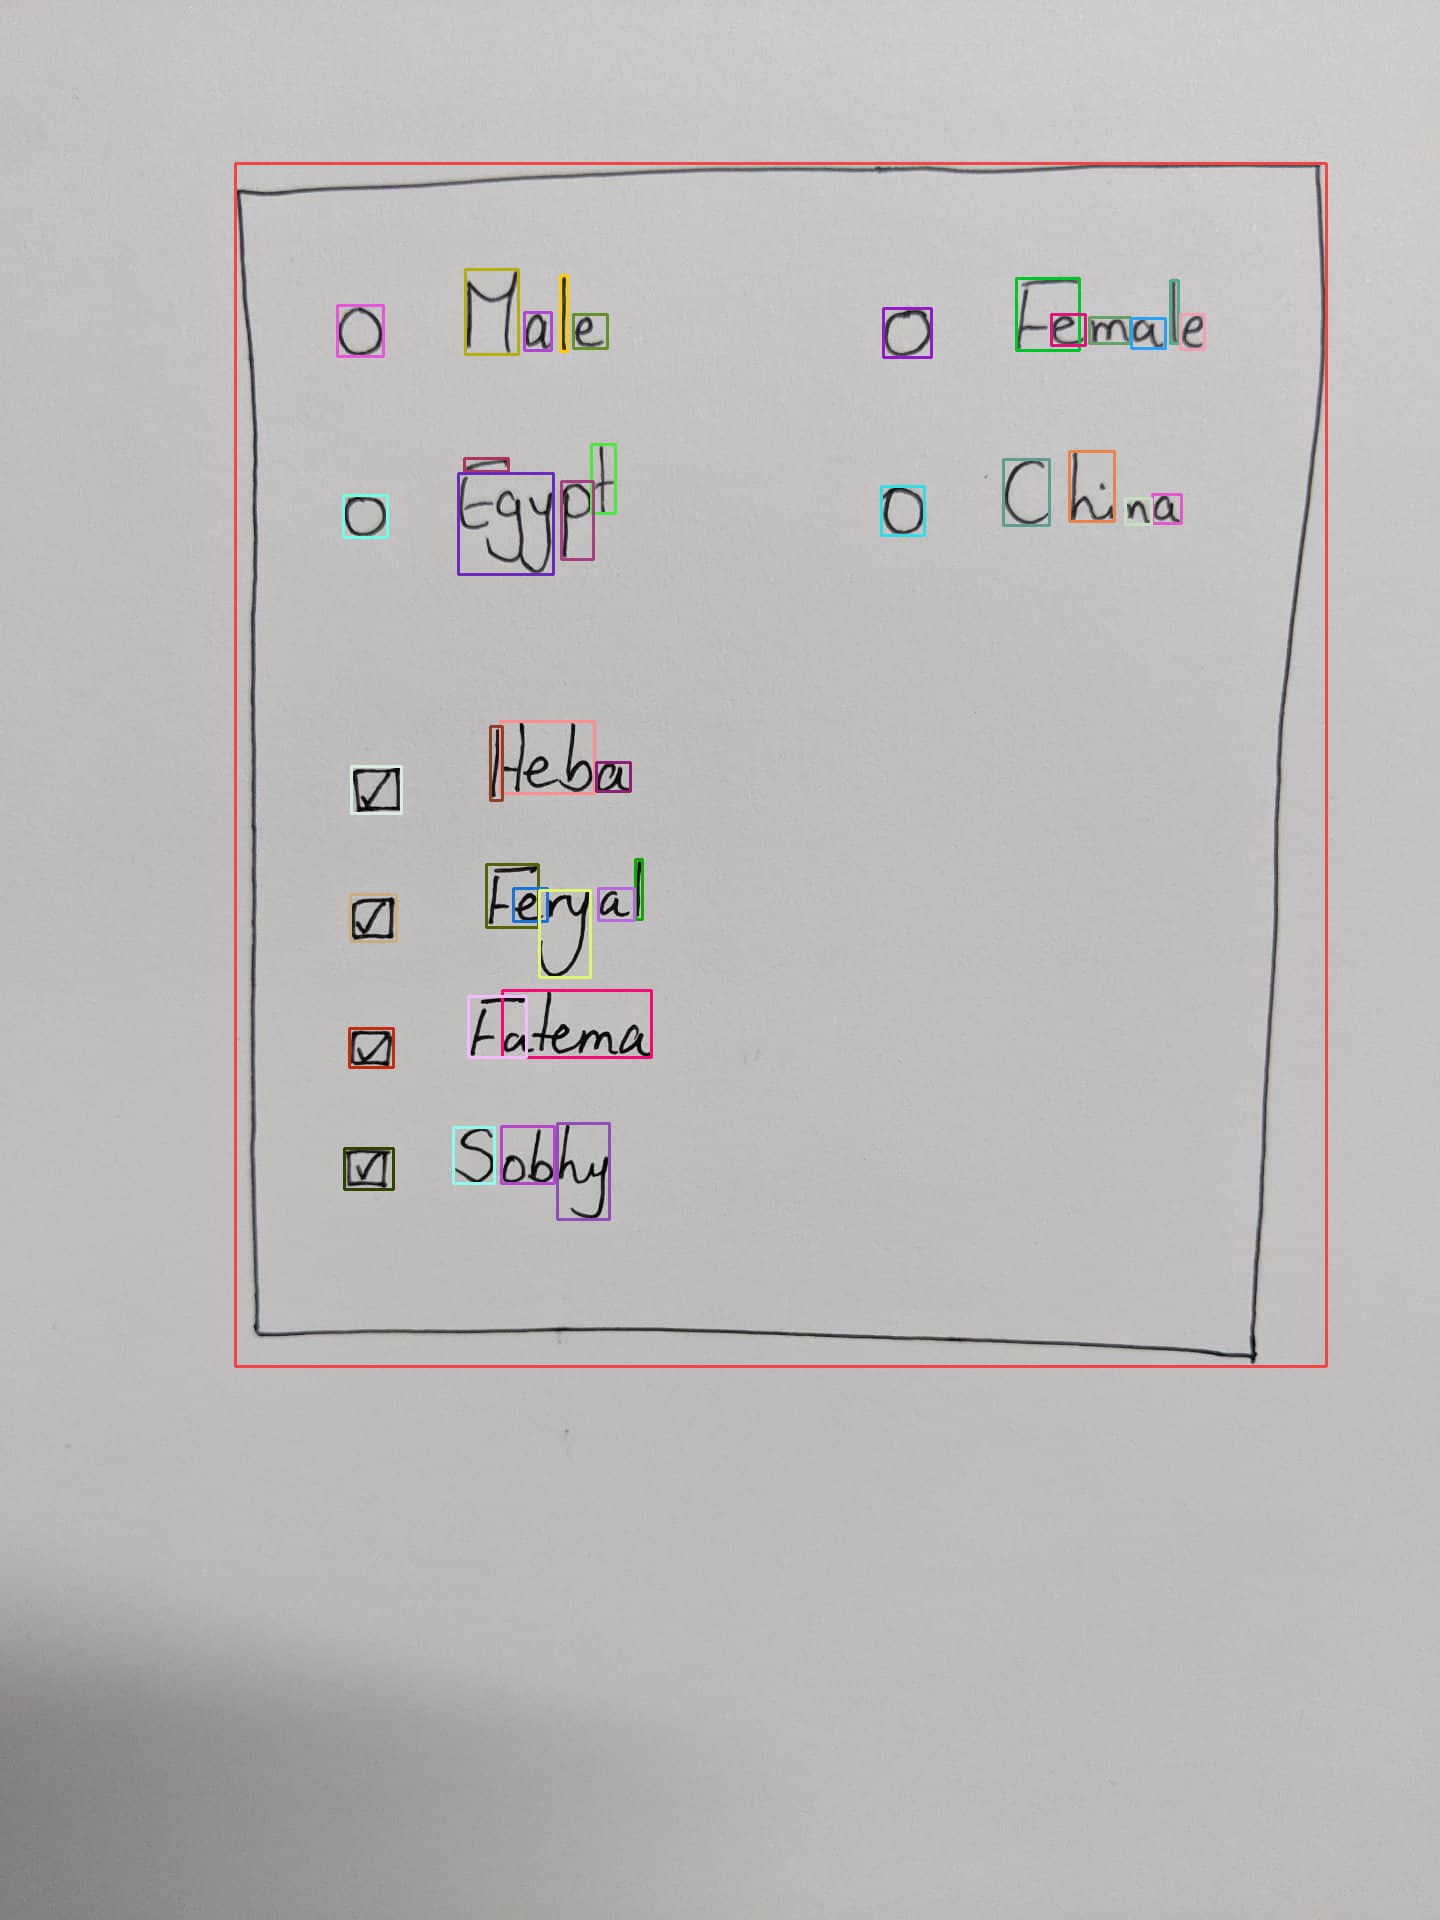 Male Female
Egypt China
Heba
Feryal
Fatema
Sobhy